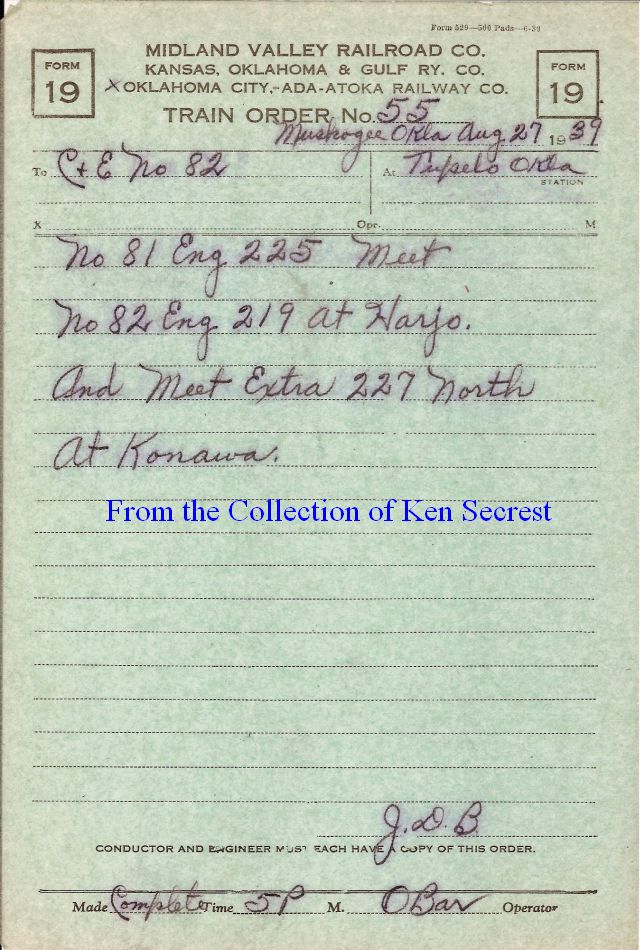 Form 529—500 Pads—6-39
MIDLAND VALLEY RAILROAD CO.
FORM 19
KANSAS, OKLAHOMA & GULF RY. CO.
FORM 19
X OKLAHOMA CITY-ADA-ATOKA RAILWAY CO.
TRAIN ORDER No. 55
Muskogee Okla Aug 27 1939
To C + E No 82
At Tupelo Okla
STATION
X Opr. M
No 81 Eng 225 Meet
No 82 Eng 219 at Harjo.
And Meet Extra 227 North
At Konawa.
From the Collection of Ken Secrest
J.D.B.
CONDUCTOR AND ENGINEER MUST EACH HAVE A COPY OF THIS ORDER.
Made Complete Time 5P M. OBar Operator